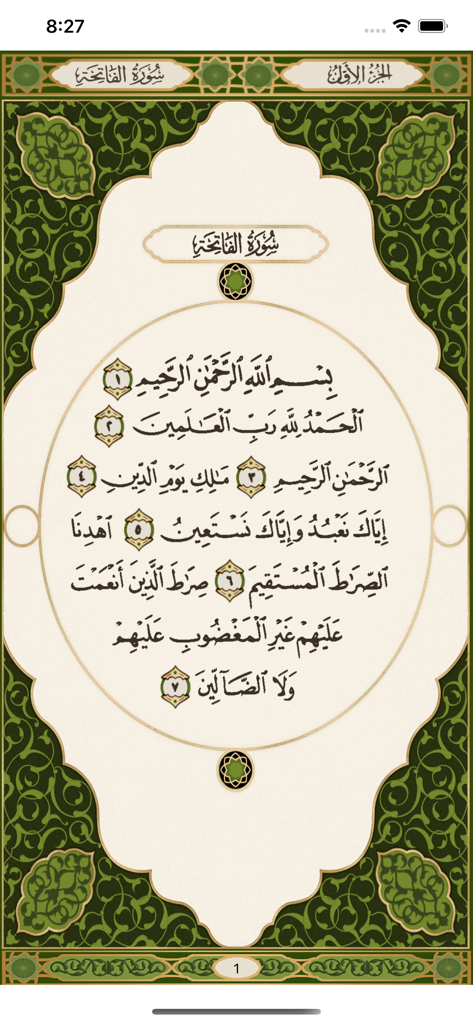 8:27
الجزء الأول
سورة الفاتحة
سُورَةُ الفَاتِحَةِ
بِسْمِ ٱللَّهِ ٱلرَّحْمَٰنِ ٱلرَّحِيمِ ١
ٱلْحَمْدُ لِلَّهِ رَبِّ ٱلْعَٰلَمِينَ ٢
ٱلرَّحْمَٰنِ ٱلرَّحِيمِ ٣ مَٰلِكِ يَوْمِ ٱلدِّينِ ٤
إِيَّاكَ نَعْبُدُ وَإِيَّاكَ نَسْتَعِينُ ٥ ٱهْدِنَا
ٱلصِّرَٰطَ ٱلْمُسْتَقِيمَ ٦ صِرَٰطَ ٱلَّذِينَ أَنْعَمْتَ
عَلَيْهِمْ غَيْرِ ٱلْمَغْضُوبِ عَلَيْهِمْ
وَلَا ٱلضَّآلِّينَ ٧
1